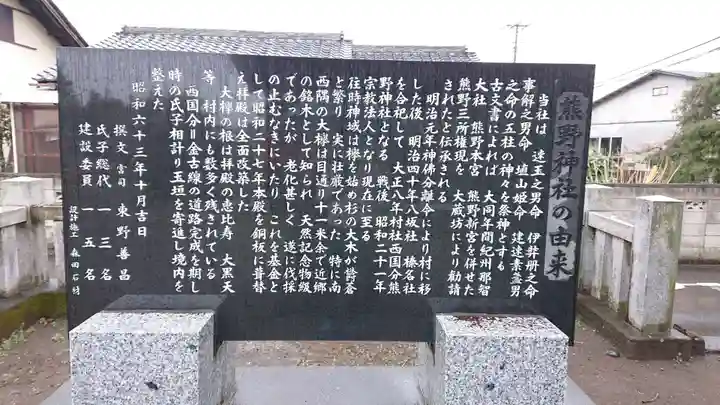 熊野神社の由来
当社は 速玉之男命 伊弉冊之命
事解之男命 埴山姫命 建速素盞男
之命の五柱の神々を祭神とする
古文書によれば 大同年間紀州那智
大社 熊野本宮 熊野新宮を併せた
熊野三所権現を 大蔵坊により勧請
されたと伝承される
明治元年神佛分離令により村に移
した後 明治四十年八坂社 榛名社
を合祀して 大正八年村社西国分熊
野神社となる 戦後 昭和二十一年
宗教法人となり現在に至る
往時神域は欅を始め杉の大木が鬱蒼
と繁り 実に壮厳であった 特に南
西隅の大欅は目通り十一米余で近郷
の銘木として知られ 天然記念物級
であったが 老化甚しく 遂に伐採
の止むなきにいたり これを基金と
して昭和二十七年本殿を銅板に葺替
え拝殿は全面改築した
大欅の根は拝殿の恵比寿 大黒天
等 村内にも数多く残されている
西国分＝金古線の道路完成を期し
時の氏子相計り玉垣を寄進し境内を
整えた
昭和六十三年十月吉日
撰文 宮司 東野善昌
氏子総代 一三名
建設委員 五名
設計施工 森田石材